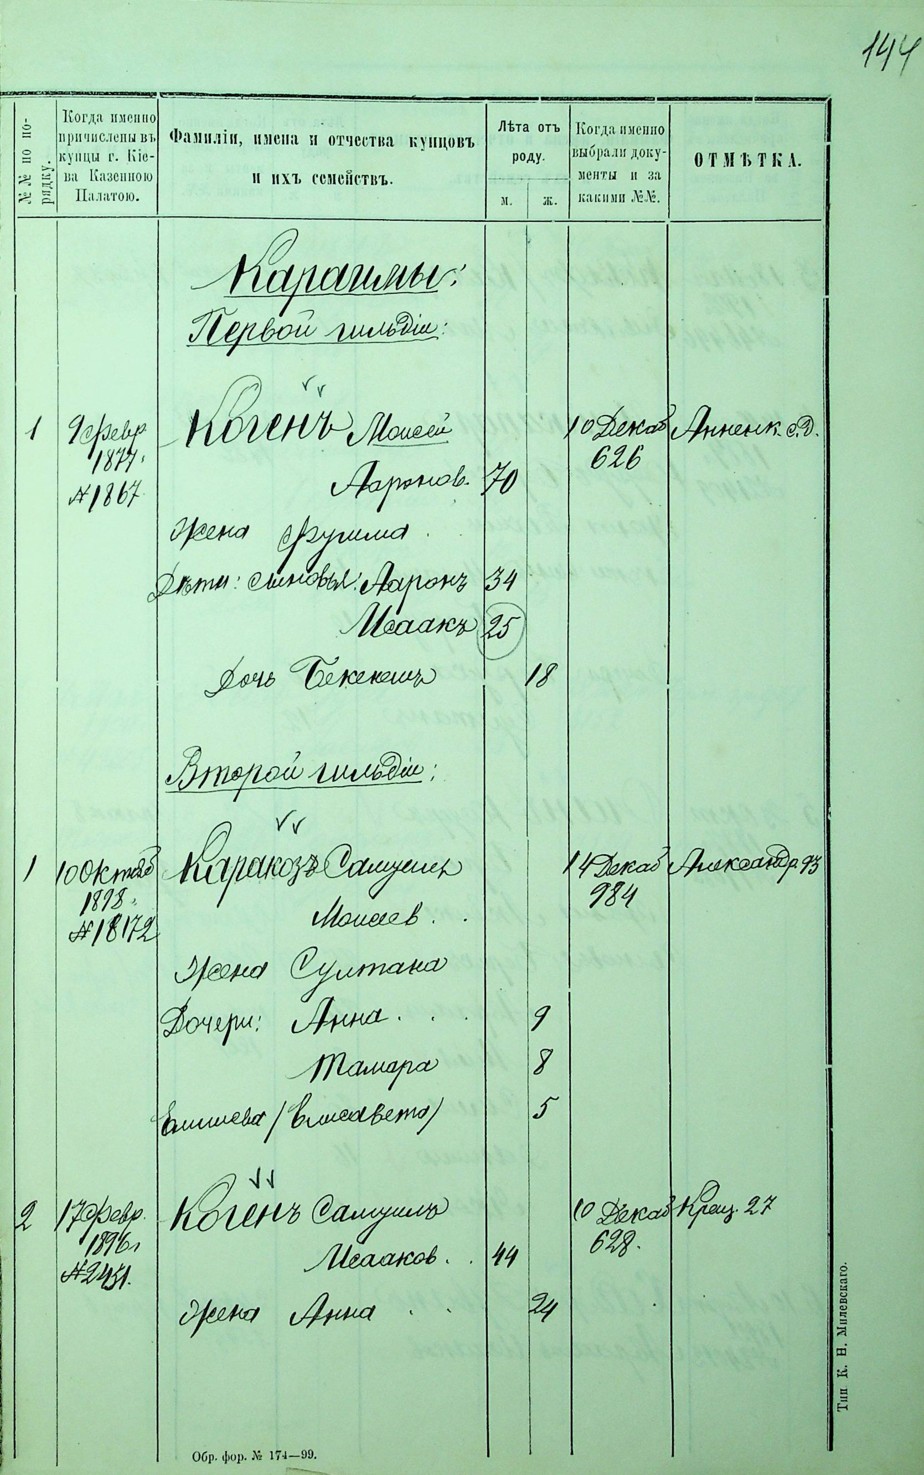 144
№№ по по-
рядку.
Когда именно
причислены въ
купцы г. Кіе-
ва Казенною
Палатою.
Фамиліи, имена и отчества купцовъ
и ихъ семействъ.
Лѣта отъ
роду.
м. ж.
Когда именно
выбрали доку-
менты и за
какими №№.
ОТМѢТКА.
Караимы:
Первой гильдіи:
1 9 февр. Когенъ Моисей 10 Декаб Анненк. с.д.
1877. 626
№ 1867 Ааронов. 70
Жена
Дѣти: сыновья: Ааронъ 34
Исаакъ 25
Дочь Бекенешъ 18
Второй гильдіи:
1 10 Октяб Каракозъ Самуилъ 14 Декаб Александр. 93
1898 984
№ 18172 Моисеев.
Жена Султана
Дочери: Анна 9
Тамара 8
(Елисавета) 5
2 17 февр. Когенъ Самуилъ 10 Декаб Крещ. 27
1896 г. 628.
№ 2451. Исааков. 44
Жена Анна 24
Обр. фор. № 174—99.
Тип К. Н. Милевскаго.